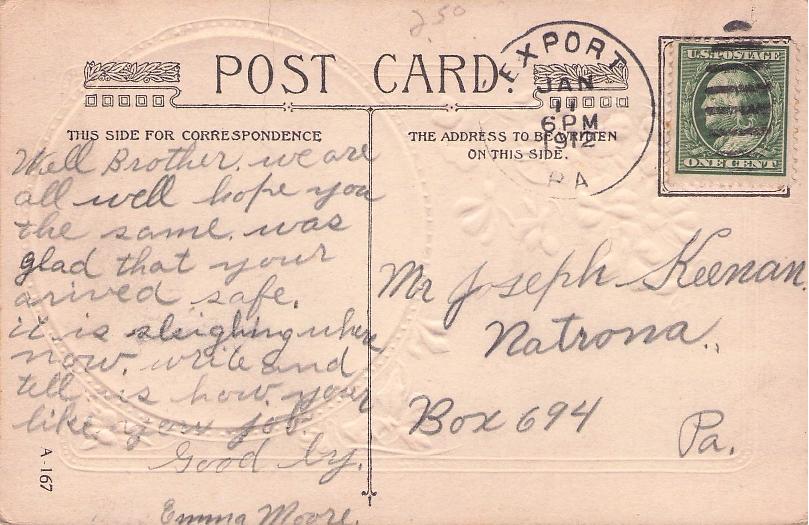 2.50
POST CARD.
EXPORT
JAN
11
6PM
1912
PA
U.S. POSTAGE
ONE CENT
THIS SIDE FOR CORRESPONDENCE
THE ADDRESS TO BE WRITTEN
ON THIS SIDE.
Well Brother. we are
all well hope you
the same. was
glad that your
arived safe.
it is sleighing where
now. write and
tell us how your
like your job.
Good by.
Emma Moore.
Mr Joseph Keenan.
Natrona.
Box 694
Pa.
A-167